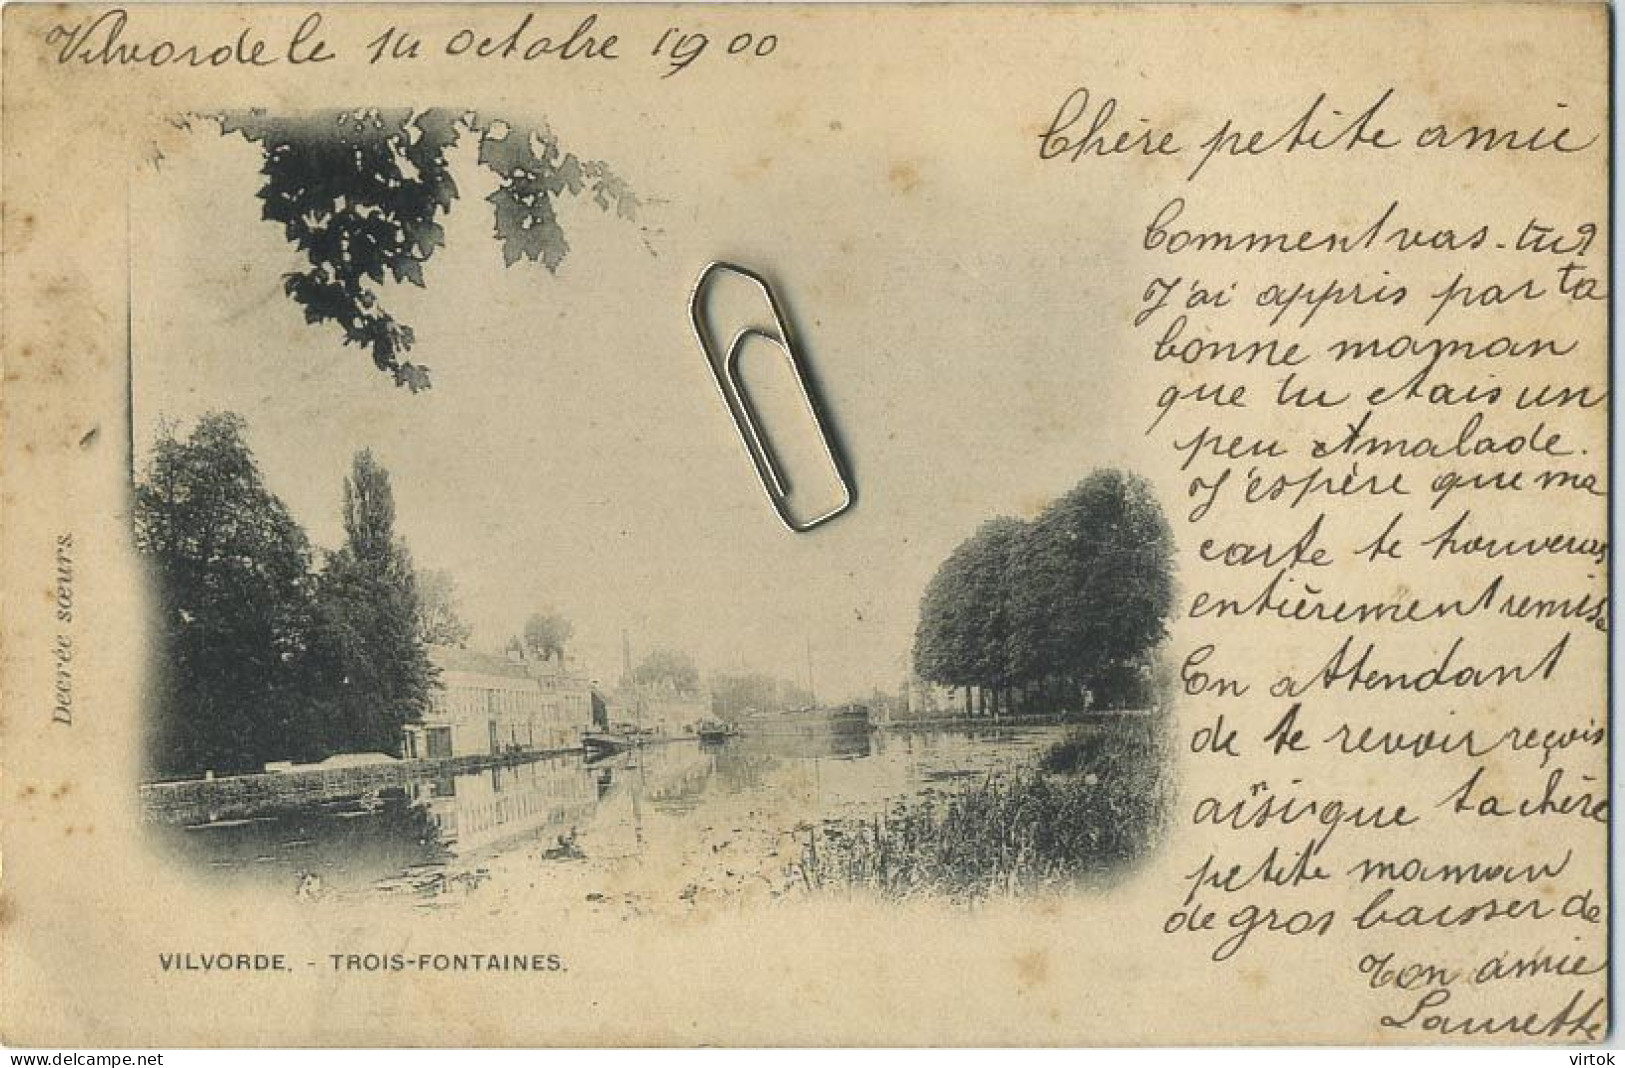 Vilvorde le 14 Octobre 1900
Chère petite amie
Comment vas-tu?
J'ai appris par ta
bonne maman
que tu etais un
peu malade.
J'espère que ma
carte te trouveras
entièrement remise
En attendant
de te revoir reçois
ainsi que ta chère
petite maman
de gros baisser de
Ton amie
Laurette
Decrée sœurs.
VILVORDE. - TROIS-FONTAINES.
virtok